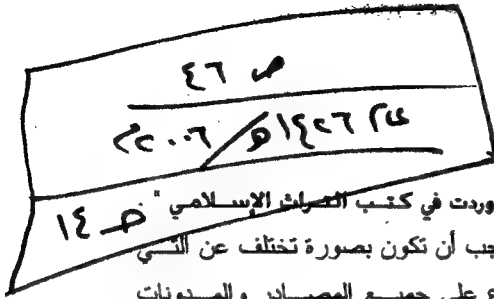 ص ٤٦
عام ١٤٢٦هـ/٢٠٠٦م
وردت في كتب التراث الإسلامي "
ص ١٤
جب أن تكون بصورة تختلف عن التي
ع على جميع المصادر والمدونات